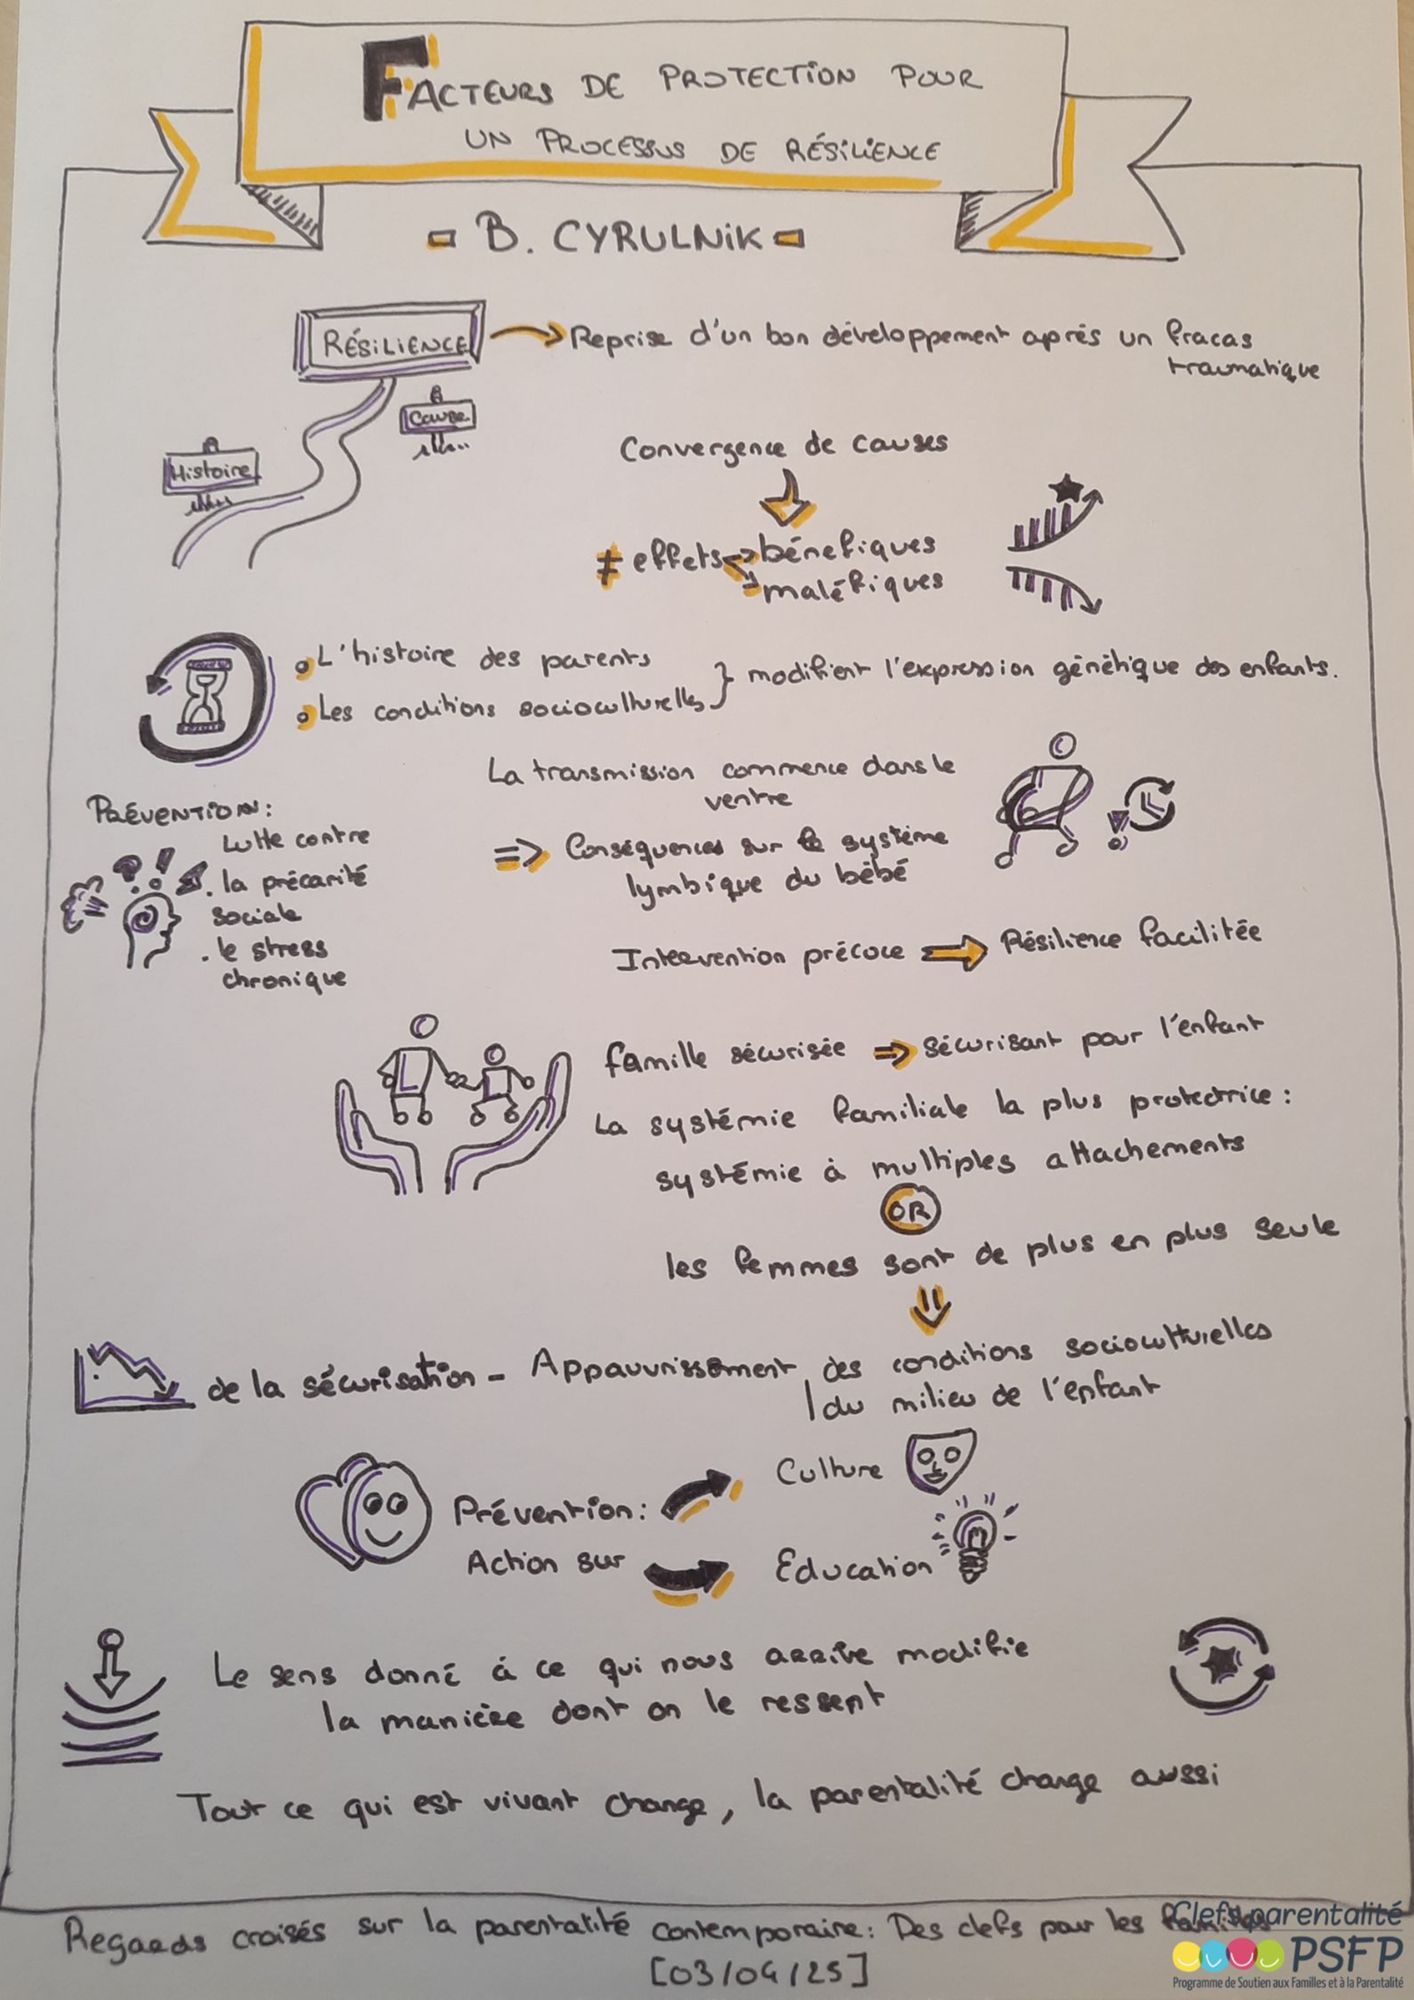 FACTEURS DE PROTECTION POUR
UN PROCESSUS DE RÉSILIENCE
B. CYRULNIK
RÉSILIENCE
Reprise d'un bon développement après un fracas
traumatique
Cause
Histoire
Convergence de causes
≠ effets bénefiques
maléfiques
L'histoire des parents
Les conditions socioculturelles
} modifient l'expression génétique des enfants.
La transmission commence dans le
ventre
=> Conséquences sur le système
lymbique du bébé
PRÉVENTION:
Lutte contre
. la précarité
sociale
. le stress
chronique
Intervention précoce => Résilience facilitée
famille sécurisée => sécurisant pour l'enfant
La systémie familiale la plus protectrice :
systémie à multiples attachements
OR
les femmes sont de plus en plus seule
de la sécurisation - Appauvrissement des conditions socioculturelles
du milieu de l'enfant
Prévention:
Action sur
Culture
Education
Le sens donné à ce qui nous arrive modifie
la manière dont on le ressent
Tout ce qui est vivant change, la parentalité change aussi
Regards croisés sur la parentalité contemporaine: Des clefs pour les familles
[03/04/25]
Clefs parentalité
PSFP
Programme de Soutien aux Familles et à la Parentalité